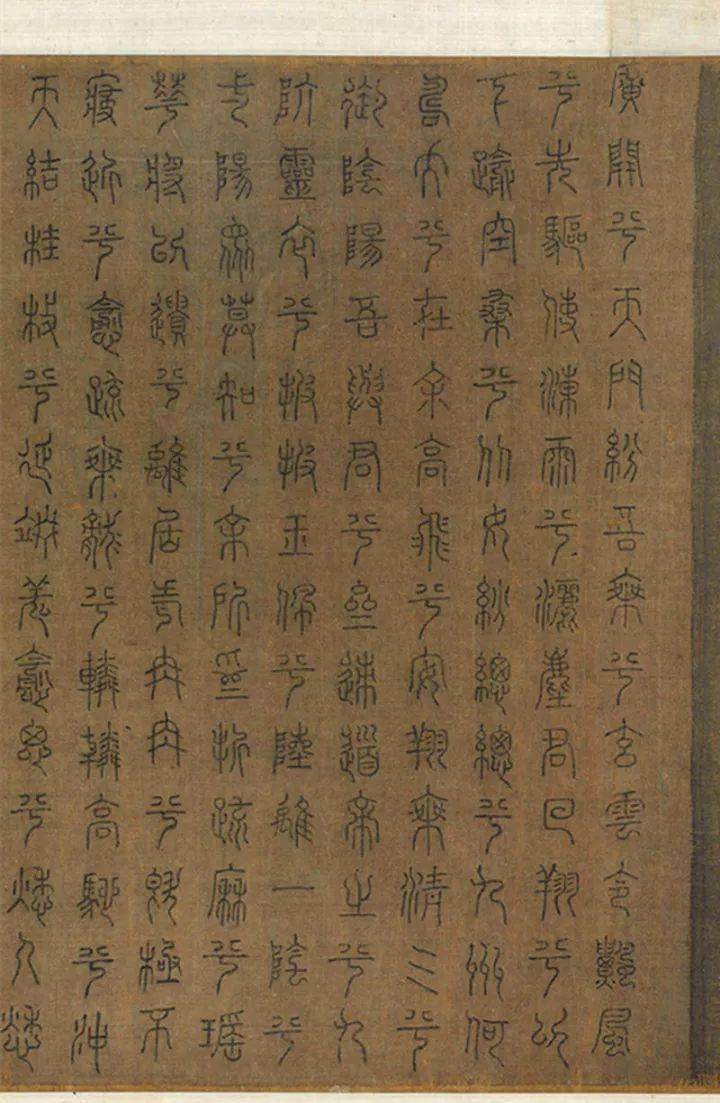 廣開兮天門紛吾乘兮玄雲令飄風
兮先驅使涷雨兮灑塵君回翔兮以
下踰空桑兮從女紛總總兮九州何
壽夭兮在余高飛兮安翔乘清氣兮
御陰陽吾與君兮齊速道帝之兮九
阬靈衣兮披披玉佩兮陸離一陰兮
一陽眾莫知兮余所為折疏麻兮瑤
華將以遺兮離居老冉冉兮既極不
寖近兮愈疏乘龍兮轔轔高馳兮沖
天結桂枝兮延竚羌愈思兮愁人愁